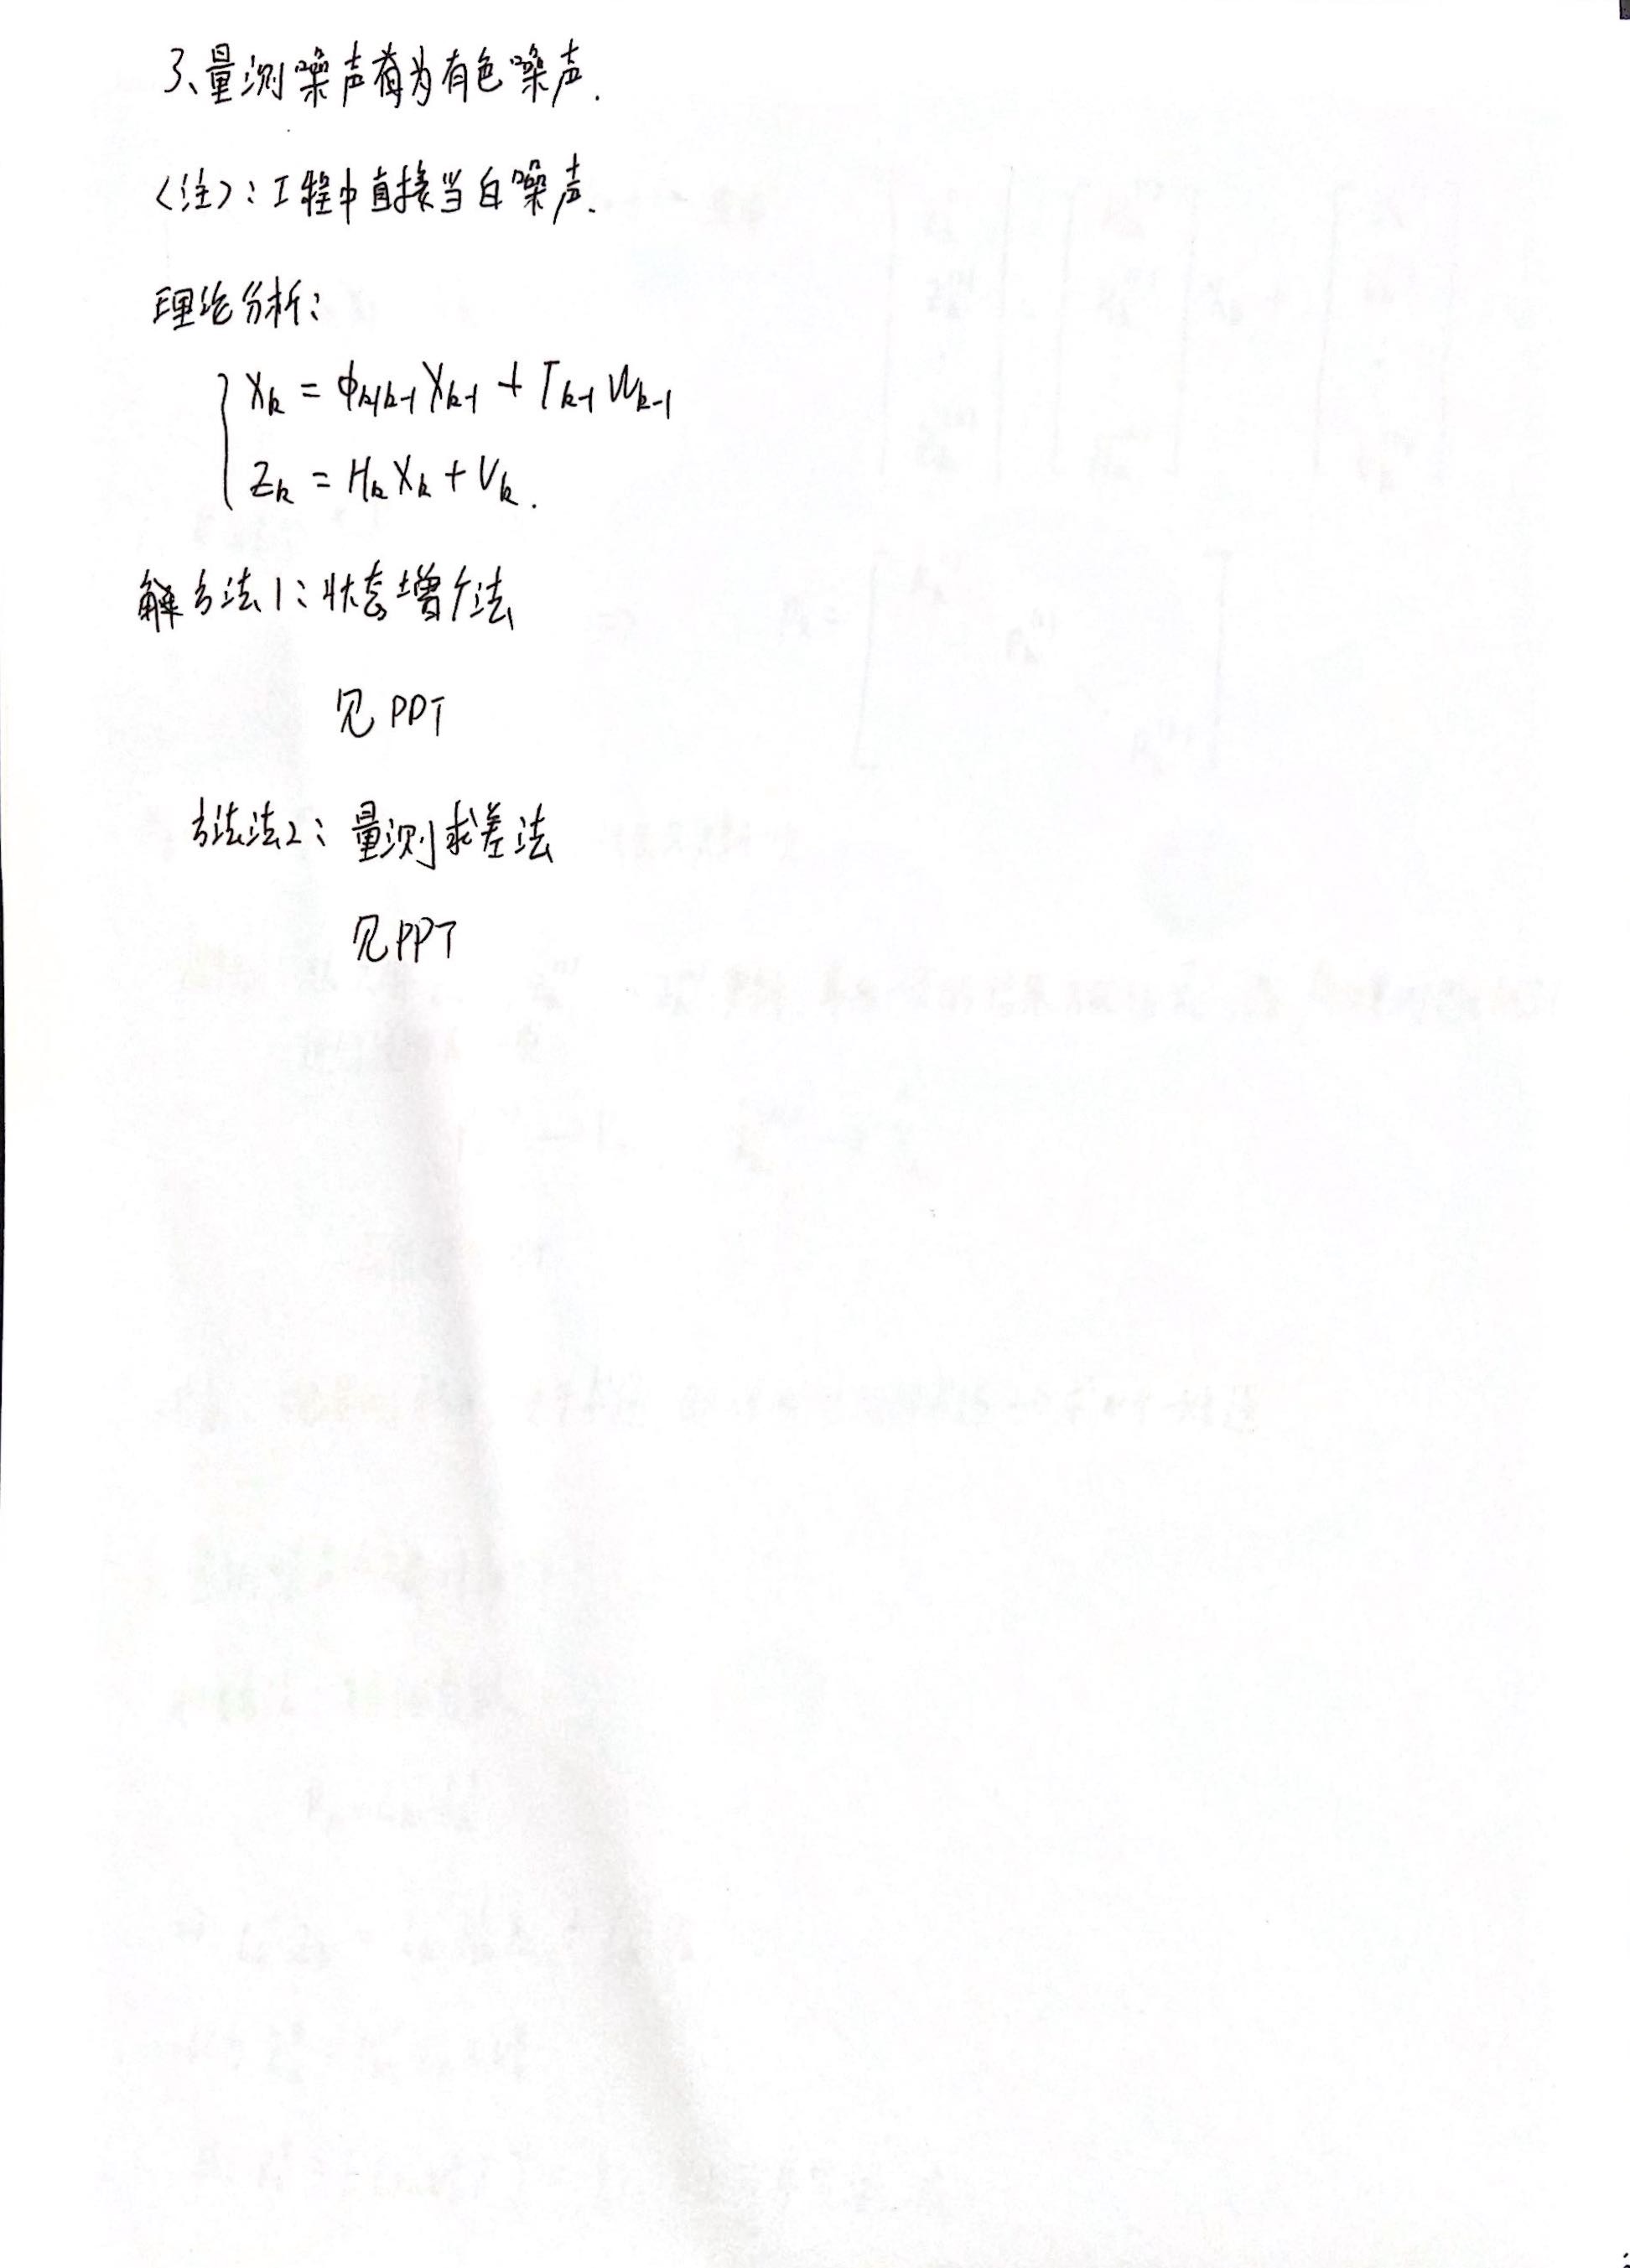 3、量测噪声为有色噪声.
<注>:工程中直接当白噪声.
理论分析:
Xk = φk/k-1 Xk-1 + Γk-1 Wk-1
Zk = Hk Xk + Vk.
解方法1:状态增广法
见PPT
方法法2:量测求差法
见PPT